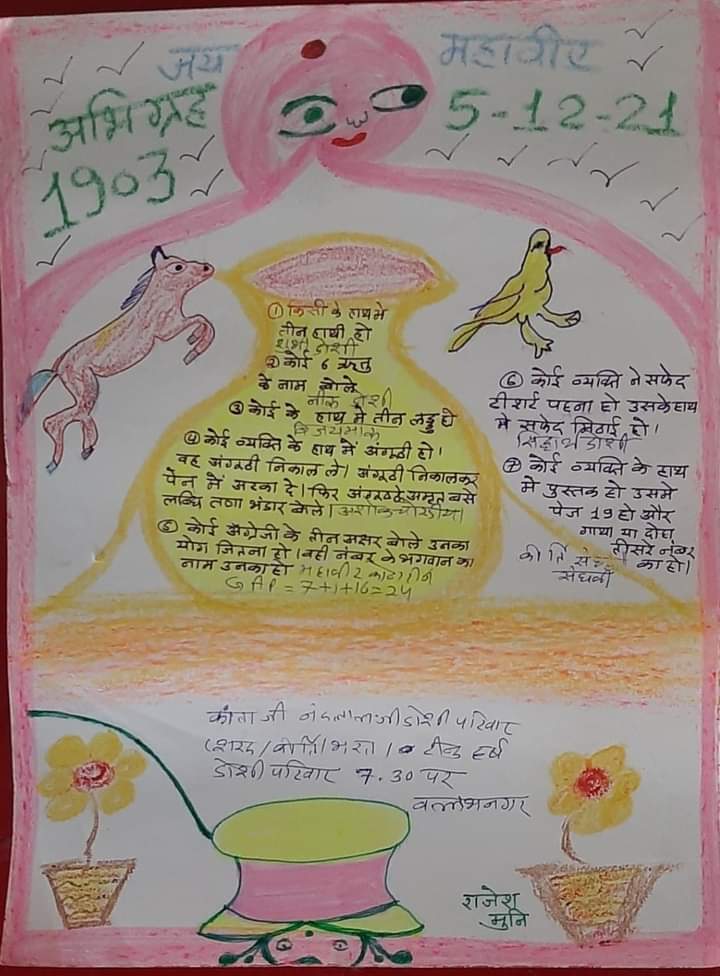 जय महावीर
अभिग्रह 5-12-21
1903
① किसी के हाथ मे
तीन हाथी हो
शशी डोशी
② कोई 6 ऋतु
के नाम बोले
डोशी
③ कोई के हाथ मे तीन लड्डू हो
④ कोई व्यक्ति के हाथ में अंगूठी हो।
वह अंगूठी निकाल ले। अंगूठी निकालकर
पेन में अटका दे। फिर अंगूठे अमृत बसे
लब्धि तणा भंडार बोले।
⑤ कोई अंग्रेजी के तीन अक्षर बोले उनका
योग जितना हो। वही नंबर के भगवान का
नाम उनका हो महावीर
GAP = 7+1+16=24
⑥ कोई व्यक्ति ने सफेद
टीशर्ट पहना हो उसके हाथ
मे सफेद मिठाई हो।
सिद्धार्थ डोशी
⑦ कोई व्यक्ति के हाथ
मे पुस्तक हो उसमे
पेज 19 हो और
गाथा या दोहा
तीसरे नंबर
का हो।
संघवी
कांता जी नंदलालजी डोशी परिवार
डोशी परिवार 7.30 पर
वल्लभनगर
राजेश
मुनि